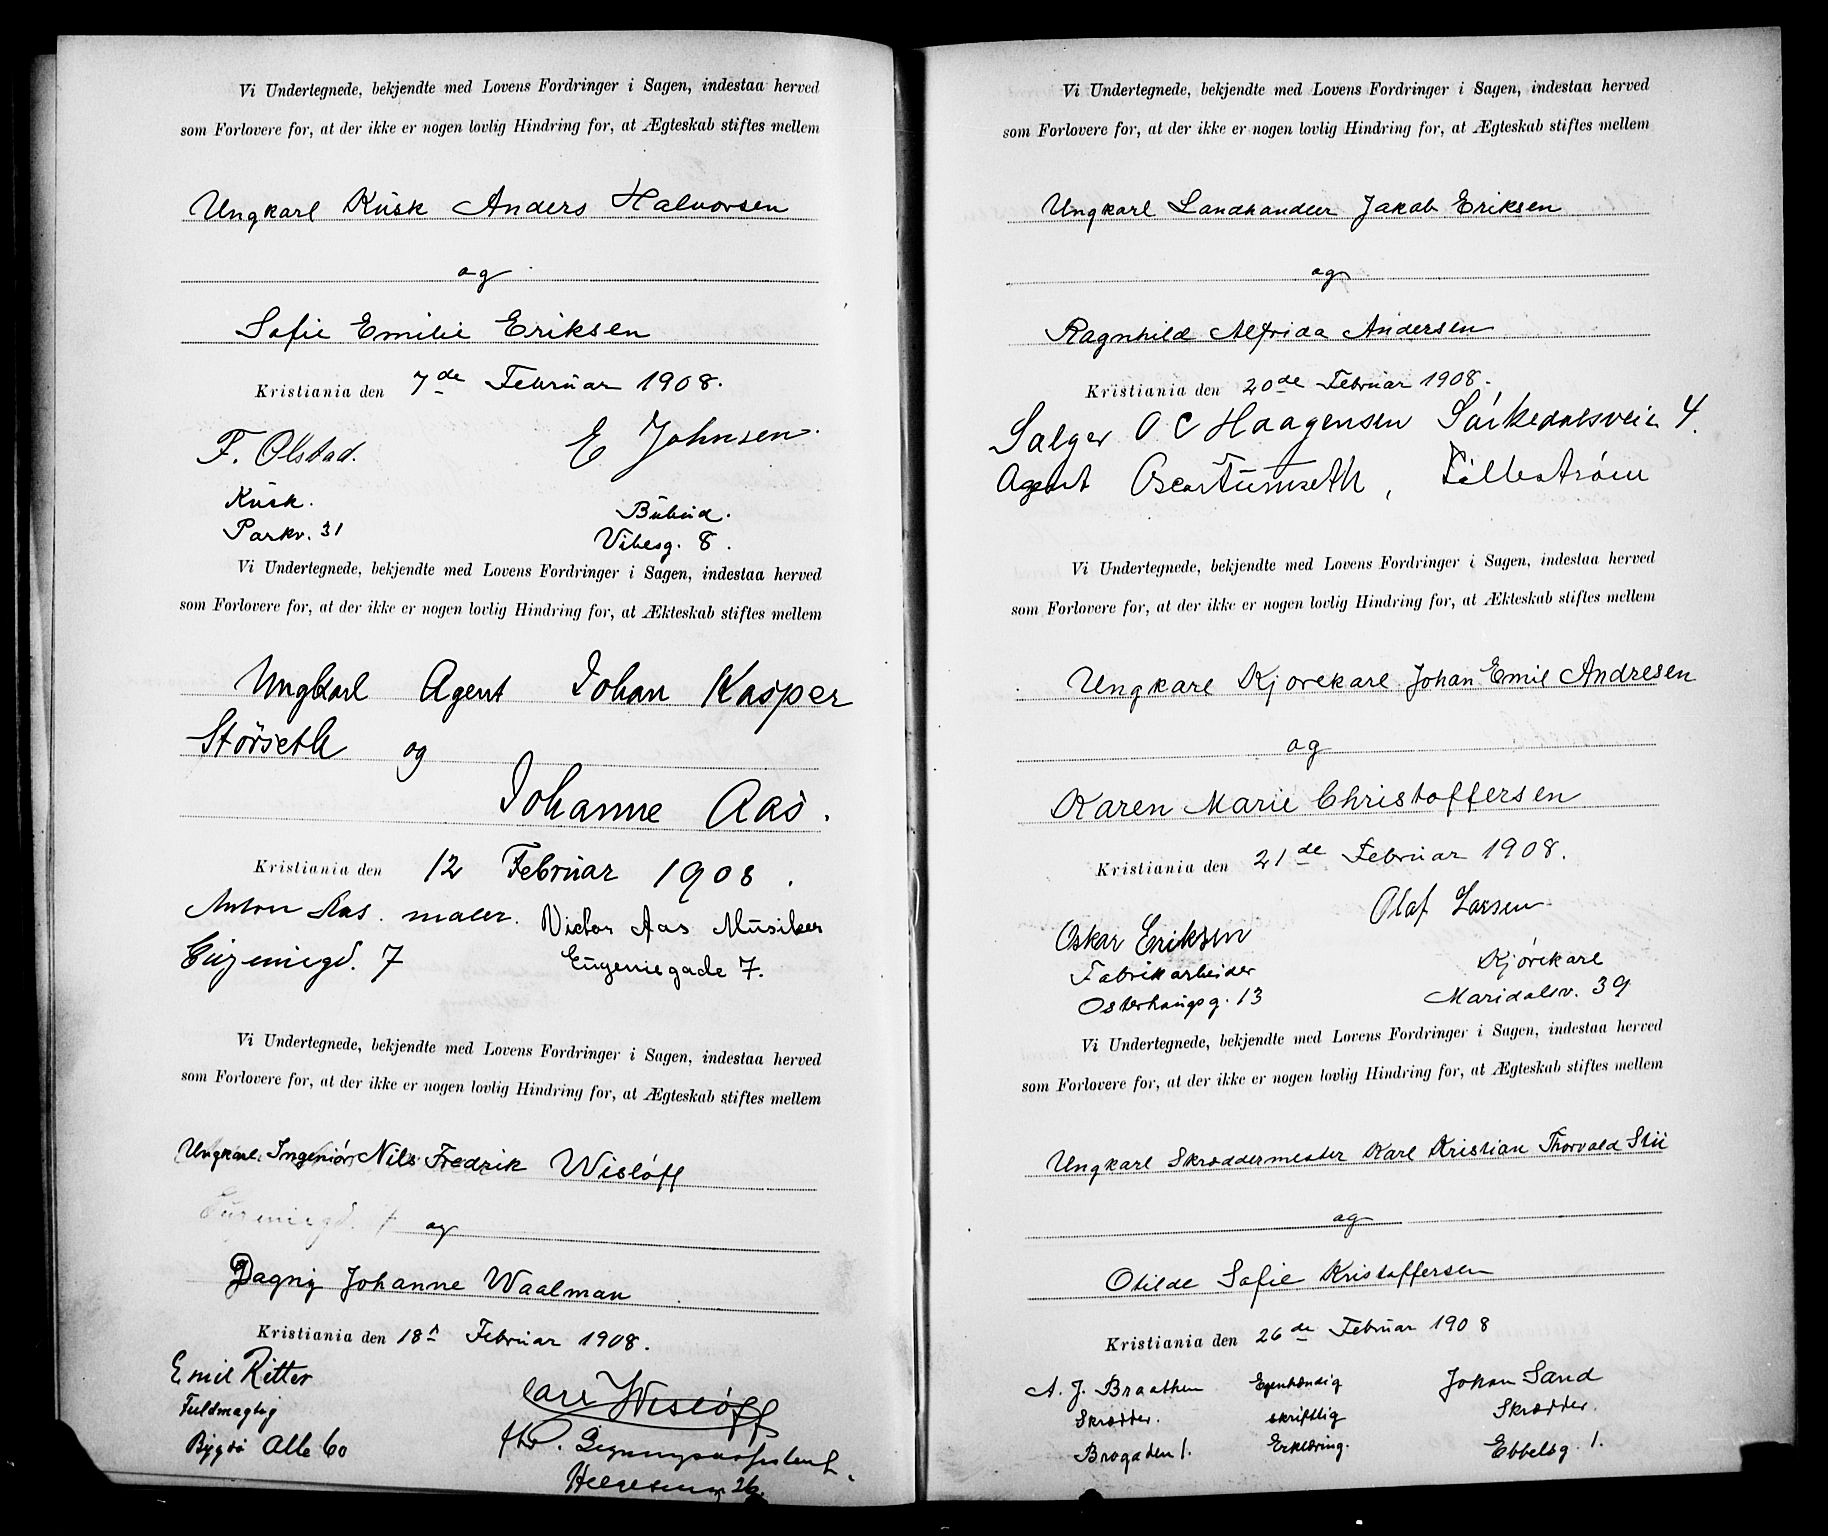 Vi Undertegnede, bekjendte med Lovens Fordringer i Sagen, indestaa herved
som Forlovere for, at der ikke er nogen lovlig Hindring for, at Ægteskab stiftes mellem
Ungkarl Kusk Anders Halvorsen
og
Sofie Emilie Eriksen
Kristiania den 7de Februar 1908.
F. Olstad. E Johnsen.
Kusk. Bübud.
Parkv. 31 Vibesg. 8.
Vi Undertegnede, bekjendte med Lovens Fordringer i Sagen, indestaa herved
som Forlovere for, at der ikke er nogen lovlig Hindring for, at Ækteskab stiftes mellem
Ungkarl Agent Johan Kasper
Störseth og
Johanne Aas.
Kristiania den 12 Februar 1908.
Anton Aas. maler. Victor Aas Musiker
Eugeniegd. 7 Eugeniegade 7.
Vi Undertegnede, bekjendte med Lovens Fordringer i Sagen, indestaa herved
som Forlovere for, at der ikke er nogen lovlig Hindring for, at Ægteskab stiftes mellem
Ungkarl Ingeniør Nils Fredrik Wisløff
Eugeniegd. 7 og
Dagny Johanne Waalman
Kristiania den 18n Februar 1908.
Emil Ritter Carl Wisløff
Fuldmægtig fhv.
Bygdö Alle 60
26.
Vi Undertegnede, bekjendte med Lovens Fordringer i Sagen, indestaa herved
som Forlovere for, at der ikke er nogen lovlig Hindring for, at Ægteskab stiftes mellem
Ungkarl Landhandler Jakob Eriksen
og
Ragnhild Alfrida Andersen
Kristiania den 20de Februar 1908.
Sælger O C Haagensen Sørkedalsveien 4.
Agent Oscar Lillestrøm
Vi Undertegnede, bekjendte med Lovens Fordringer i Sagen, indestaa herved
som Forlovere for, at der ikke er nogen lovlig Hindring for, at Ækteskab stiftes mellem
Ungkarl Kjørekarl Johan Emil Andresen
og
Karen Marie Christoffersen
Kristiania den 21de Februar 1908.
Olaf Larsen
Oskar Eriksen
Kjørekarl
Fabrikarbeider
Maridalsv. 39
Osterhaugsg. 13
Vi Undertegnede, bekjendte med Lovens Fordringer i Sagen, indestaa herved
som Forlovere for, at der ikke er nogen lovlig Hindring for, at Ægteskab stiftes mellem
Ungkarl Skræddermester Karl Kristian Thorvald Stii
og
Otilde Sofie Kristoffersen
Kristiania den 26de Februar 1908
A. J. Braathen Egenhændig Johan Sand
Skrædder. skriftlig Skrædder.
Brogaden 1. Erklæring. Ebbelsg. 1.